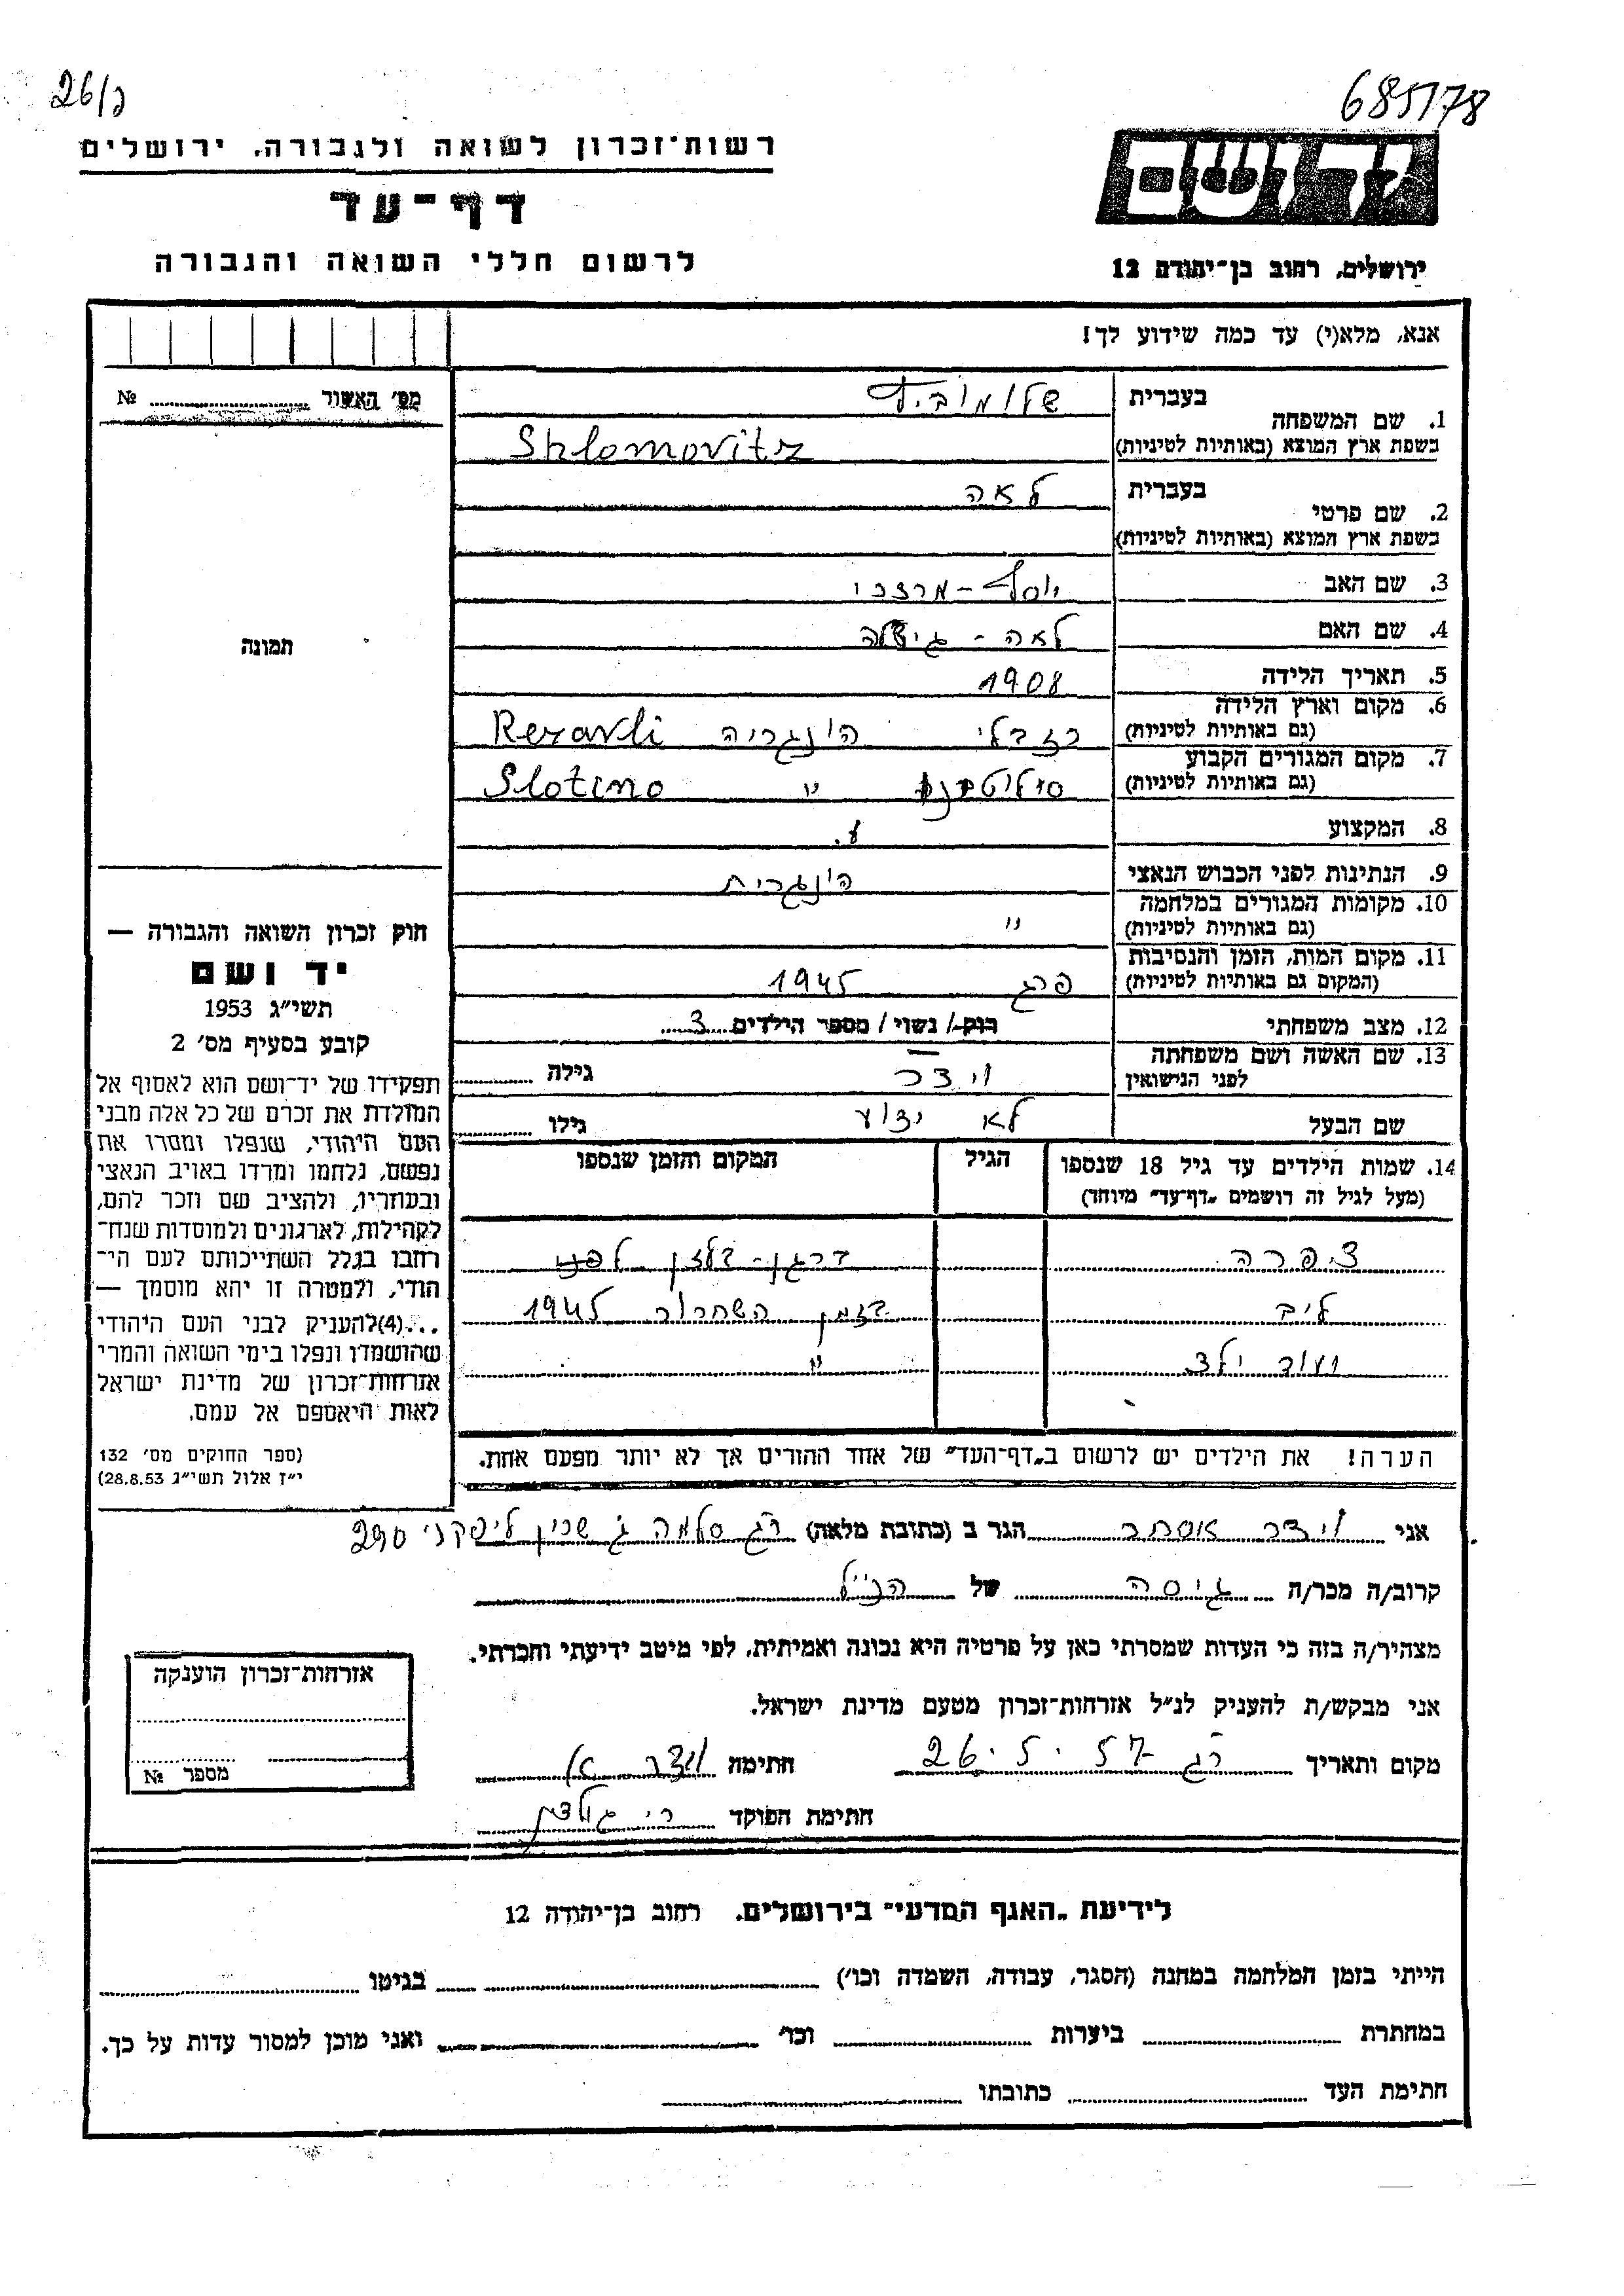 26/ג
685/78
רשות־זכרון לשואה ולגבורה, ירושלים
דף־עד
לרשום חללי השואה והגבורה
ידושם
ירושלים, רחוב בן־יהודה 12
אנא, מלא(י) עד כמה שידוע לך!
מס' האשור № 
1. שם המשפחה
בעברית שלומוביץ
בשפת ארץ המוצא (באותיות לטיניות) Shlomovitz
2. שם פרטי
בעברית לאה
בשפת ארץ המוצא (באותיות לטיניות)
3. שם האב יוסף - מרדכי
4. שם האם לאה -
5. תאריך הלידה 1908
6. מקום וארץ הלידה
(גם באותיות לטיניות) רזבלי הונגריה Rezavli
7. מקום המגורים הקבוע
(גם באותיות לטיניות) " Slotino
8. המקצוע
9. הנתינות לפני הכבוש הנאצי הונגרית
10. מקומות המגורים במלחמה
(גם באותיות לטיניות) "
11. מקום המות, הזמן והנסיבות
(המקום גם באותיות לטיניות) פרג 1945
12. מצב משפחתי רוק / נשוי / מספר הילדים 3
13. שם האשה ושם משפחתה
לפני הנישואין וידר גילה
שם הבעל לא ידוע גילו
14. שמות הילדים עד גיל 18 שנספו הגיל המקום והזמן שנספו
(מעל לגיל זה רושמים "דף־עד" מיוחד)
ציפרה ברגן - בלזן לפני
ליב בזמן השחרור 1945
ועוד ילד "
הערה! את הילדים יש לרשום ב"דף־העד" של אחד ההורים אך לא יותר מפעם אחת.
תמונה
חוק זכרון השואה והגבורה —
יד ושם
תשי"ג 1953
קובע בסעיף מס' 2
תפקידו של יד־ושם הוא לאסוף אל
המולדת את זכרם של כל אלה מבני
העם היהודי, שנפלו ומסרו את
נפשם, נלחמו ומרדו באויב הנאצי
ובעוזריו, ולהציב שם וזכר להם,
לקהילות, לארגונים ולמוסדות שנח־
רבו בגלל השתייכותם לעם הי־
הודי, ולמטרה זו יהא מוסמך —
...(4) להעניק לבני העם היהודי
שהושמדו ונפלו בימי השואה והמרי
אזרחות־זכרון של מדינת ישראל
לאות היאספם אל עמם.
(ספר החוקים מס' 132
י"ז אלול תשי"ג 28.8.53)
אני וידר אסתר הגר ב (כתובת מלאה) ר"ג סלמה ג' שכון ליפקני 290
קרוב/ה מכר/ה גיסה של הנ"ל
מצהיר/ה בזה כי העדות שמסרתי כאן על פרטיה היא נכונה ואמיתית, לפי מיטב ידיעתי והכרתי.
אני מבקש/ת להעניק לנ"ל אזרחות־זכרון מטעם מדינת ישראל.
מקום ותאריך ר"ג 26.5.57 חתימה וידר א
חתימת הפוקד
אזרחות־זכרון הוענקה
מספר №
לידיעת "האגף המדעי" בירושלים. רחוב בן־יהודה 12
הייתי בזמן המלחמה במחנה (הסגר, עבודה, השמדה וכו') בגיטו
במחתרת ביערות וכו' ואני מוכן למסור עדות על כך.
חתימת העד כתובתו